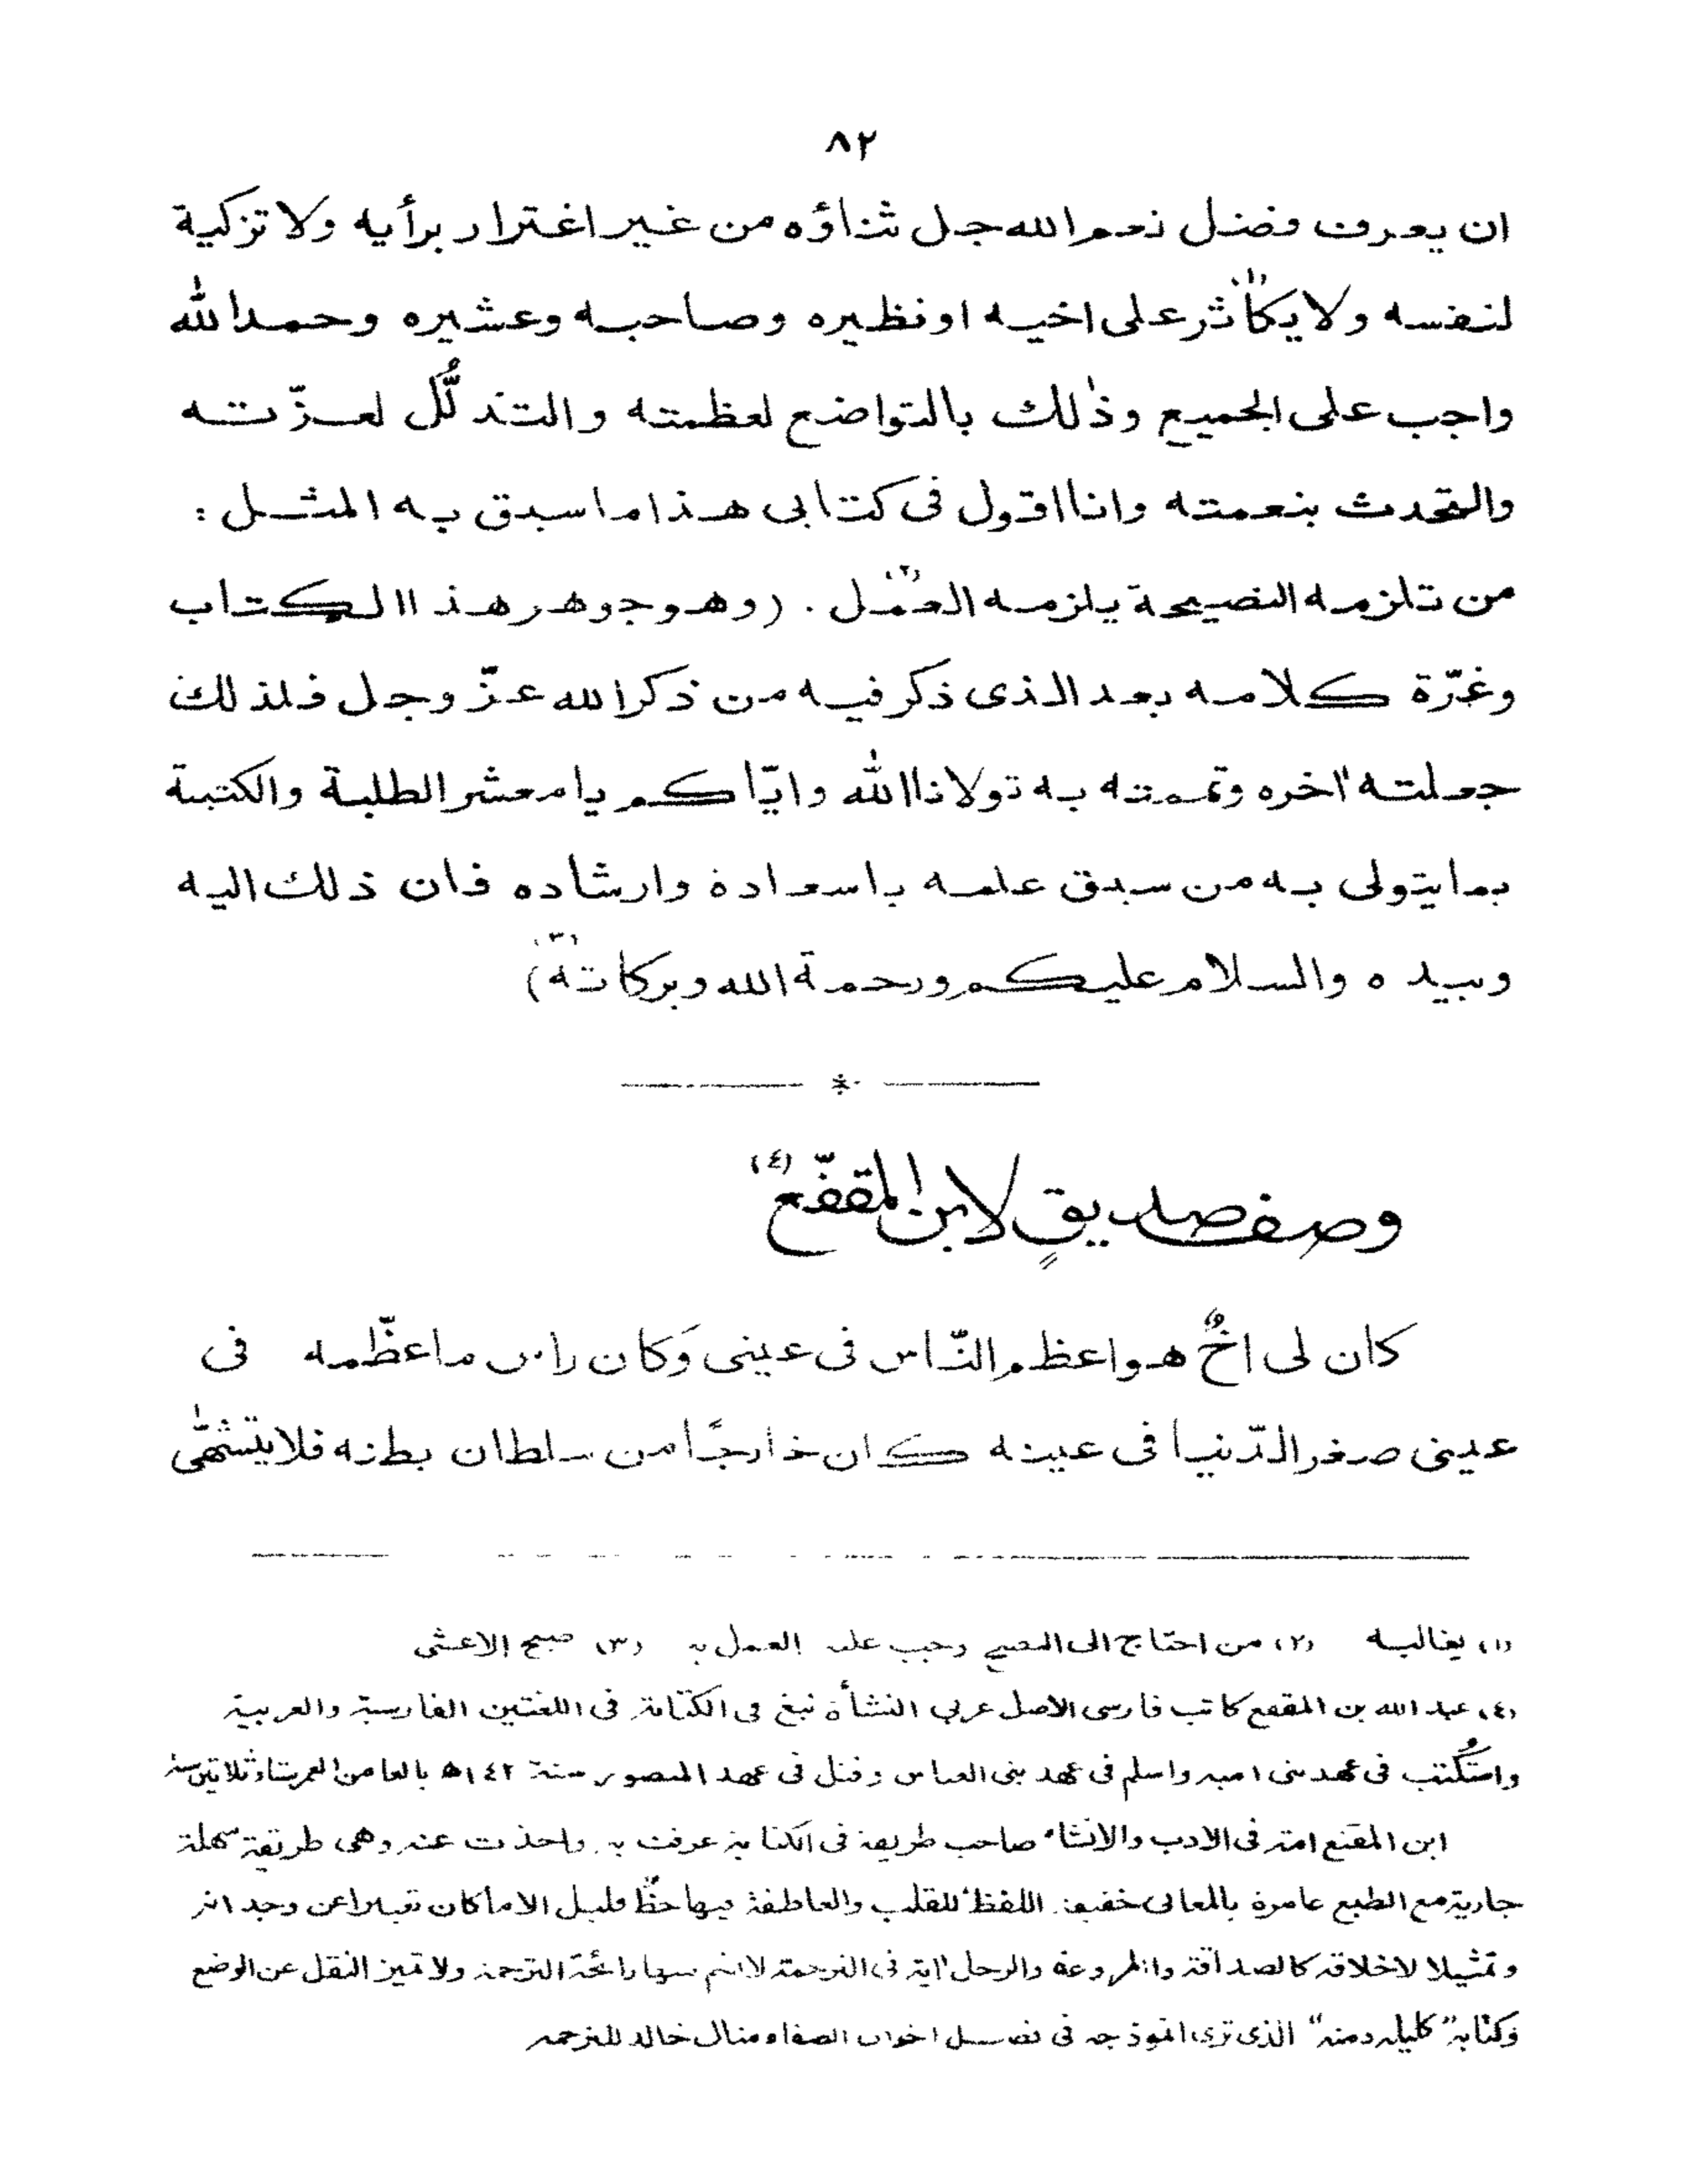 ٨٢
ان يعرف فضل نعم الله جل ثناؤه من غير اغترار برأيه ولا تزكية
لنفسه ولا يكاثر(١) على اخيه او نظيره وصاحبه وعشيره وحمد الله
واجب على الجميع وذٰلك بالتواضع لعظمته والتذلُّل لعزّته
والتحدث بنعمته وانا اقول في كتابى هذا ما سبق به المثل :
من تلزمه النصيحة يلزمه العمل(٢) . (وهو جوهر هذا الكتاب
وغرّة كلامه بعد الذى ذكر فيه من ذكر الله عزّ وجل فلذلك
جعلته اٰخره وتممته به تولانا الله وايّاكم يا معشر الطلبة والكتبة
بما يتولى به من سبق علمه باسعاده وارشاده فان ذلك اليه
وبيده والسلام عليكم ورحمة الله وبركاته(٣))
*
وصف صديقٍ لابن المقفّع(٤)
كان لى اخٌ هو اعظم النّاس فى عينى وَكان راس ما عظّمه فى
عينى صغر الدّنيا فى عينه كان خارجًا من سلطان بطنه فلا يتشهّٰى
(١) يغالبه (٢) من احتاج الى النصح وجب عليه العمل به (٣) صبح الاعشى
(٤) عبد الله بن المقفع كاتب فارسى الاصل عربي النشأة نبغ فى الكتابة فى اللغتين الفارسية والعربية
واستُكتب فى عهد بنى امية واسلم فى عهد بنى العباس وقتل فى عهد المنصور سنة ١٤٢ھ بالغا من العمر ستا وثلاثين سنة
ابن المقفع امة فى الادب والانشاء صاحب طريقة فى الكتابة عرفت به واخذت عنه وهى طريقة سهلة
جارية مع الطبع عامرة بالمعانى خفيفة اللفظ للقلب والعاطفة فيها حظٌ قليل الا ما كان تعبيرا عن وجدانه
وتمثيلا لاخلاقه كالصداقة والمروءة والرجل اٰية فى الترجمة لا تشم فيها رائحة الترجمة ولا تميز النقل عن الوضع
وكتابه "كليله دمنه" الذى ترى انموذجه فى فصل اخوان الصفاء مثال خالد للترجمه